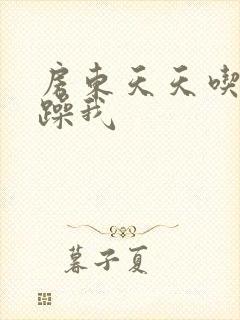 房东天天喫
躁我
暮子夏